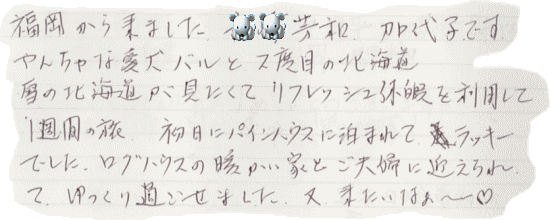 福岡から来ました. 芳和. 加代子です
やんちゃな愛犬バルと2度目の北海道
雪の北海道が見たくてリフレッシュ休暇を利用して
1週間の旅. 初日にパインハウスに泊まれて ラッキー
でした. ログハウスの暖かい家とご夫婦に迎えられ.
て. ゆっくり過ごせました. 又来たいなぁ〜♡